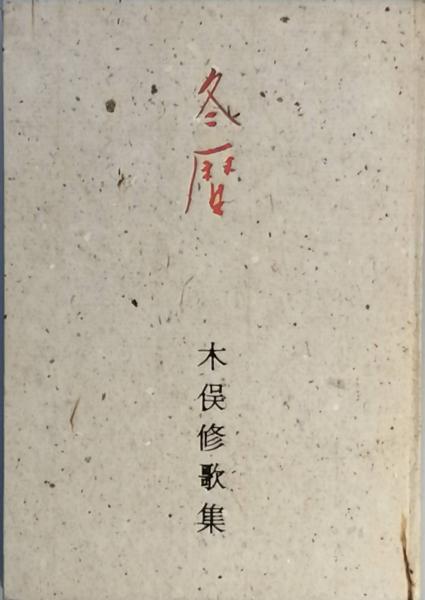 冬暦
木俣修歌集